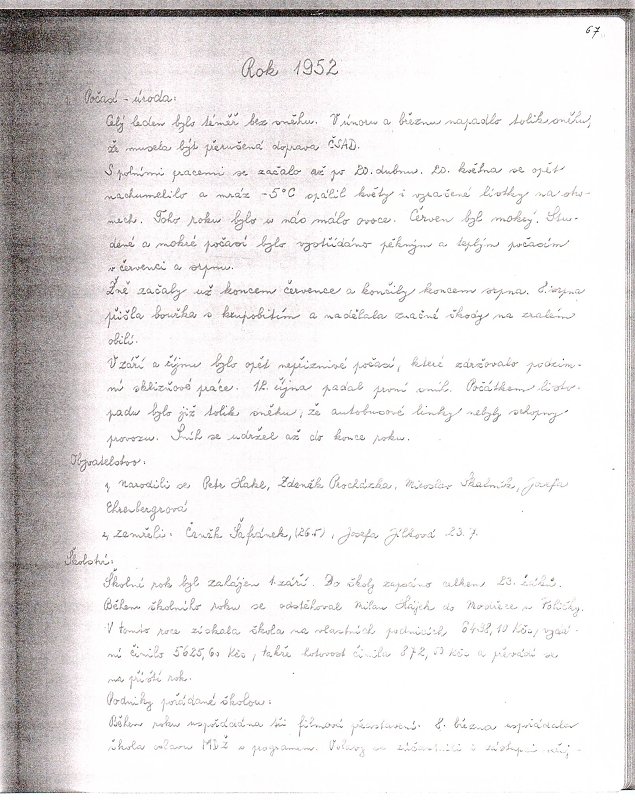 67
Rok 1952
Počasí - úroda:
Celý leden bylo téměř bez sněhu. V únoru a březnu napadlo tolik sněhu,
že musela být přerušená doprava ČSAD.
S polními pracemi se začalo až po 20. dubnu. 20. května se opět
nachumelilo a mráz -5°C spálil květy i vyrašené lístky na stro-
mech. Toho roku bylo u nás málo ovoce. Červen byl mokrý. Stu-
dené a mokré počasí bylo vystřídáno pěkným a teplým počasím
v červenci a srpnu.
Žně začaly už koncem července a končily koncem srpna. srpna
přišla bouřka s krupobitím a nadělala značné škody na zralém
obilí.
V září a říjnu bylo opět nepříznivé počasí, které zdržovalo podzim-
ní sklizňové práce. 12. října padal první sníh. Počátkem listo-
padu bylo již tolik sněhu, že autobusové linky nebyly schopny
provozu. Sníh se udržel až do konce roku.
Obyvatelstvo:
narodili se Petr Hakl, Zdeněk Procházka, Miroslav Skalník, Josefa
Ehrenbergrová
zemřeli: Čeněk Šafránek, (26.5), Josefa Jílková 23.7.
Školství:
Školní rok byl zahájen 1. září. Do školy zapsáno celkem 23. žáků.
Během školního roku se odstěhoval Milan Hájek do u Poličky.
V tomto roce získala škola na vlastních podnicích 6498,10 Kčs, vydá-
ní činilo 5625,60 Kčs, takže hotovost činila 872, Kčs a převádí se
na příští rok.
Podniky pořádané školou:
Během roku uspořádána tři filmová představení. 8. března uspořádala
škola oslavu MDŽ s programem. Oslavy se zúčastnili i zástupci